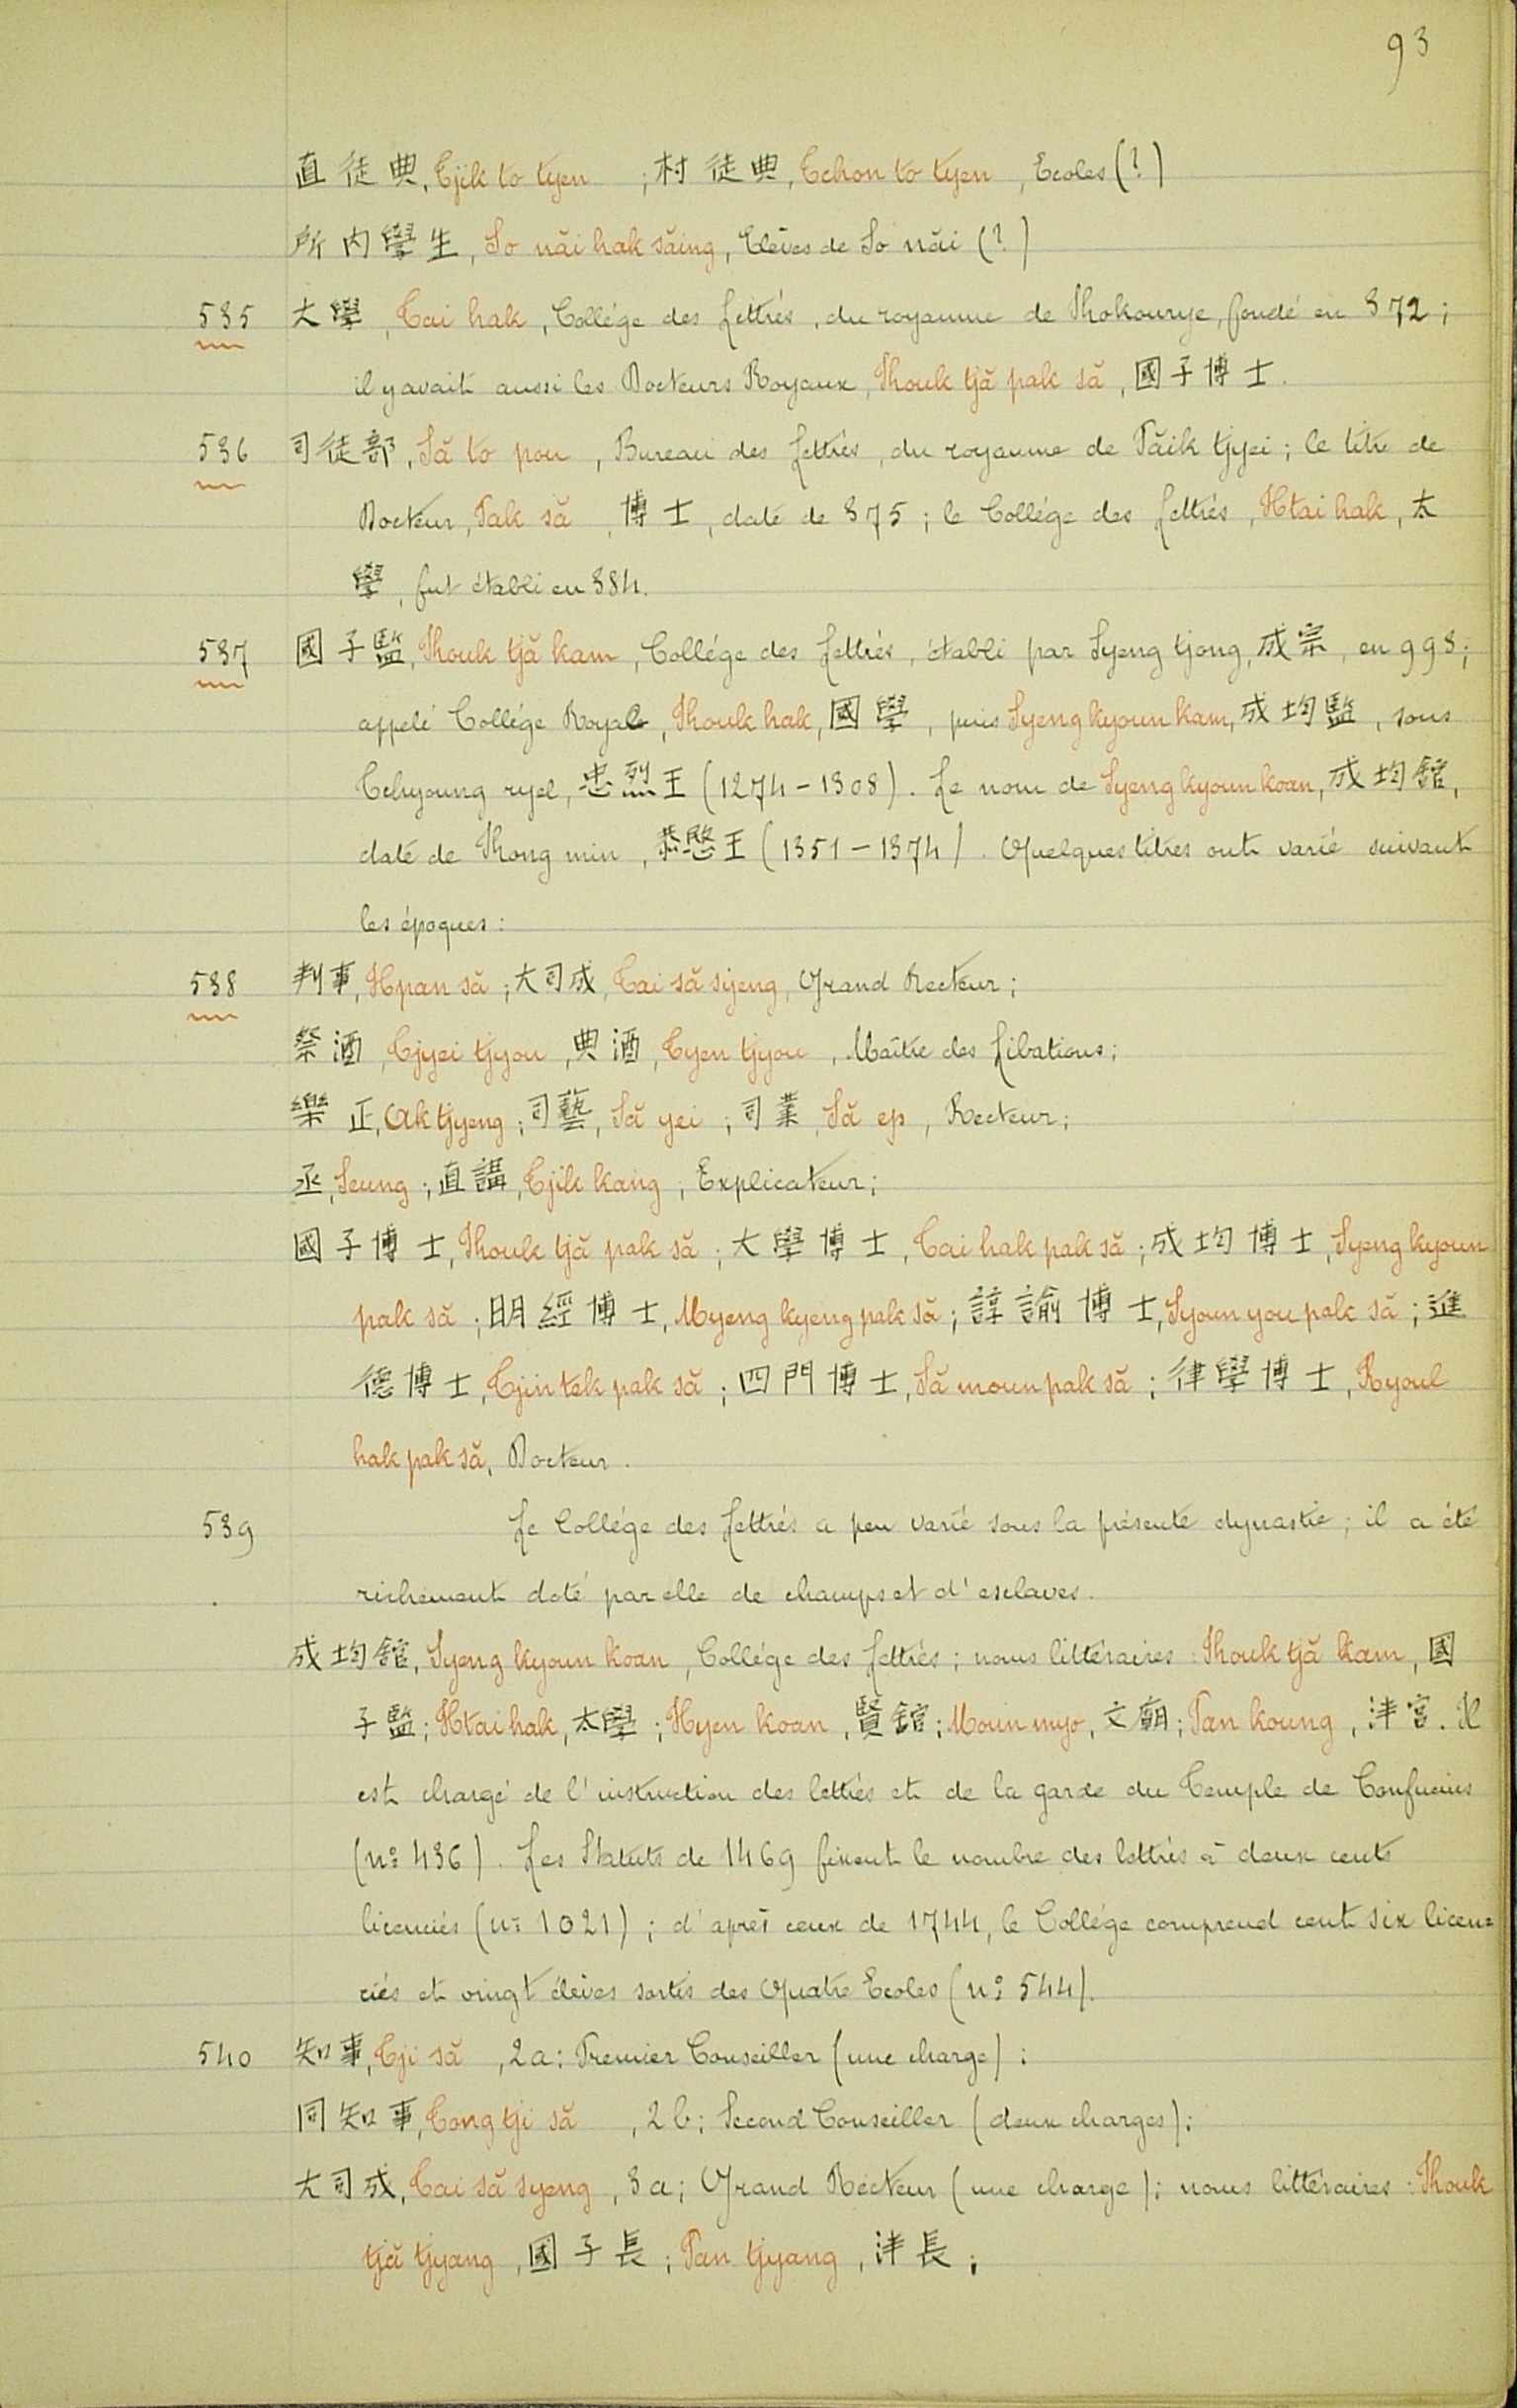 93
直徒典, Tjik to tyen ; 村徒典, Tchon to tyen, Ecoles (?)
所内學生, So năi hak săing, Elèves de So năi (?)
535 大學, Tai hak, Collége des Lettrés, du royaume de Kokourye, fondé en 372 ;
il y avait aussi les Docteurs Royaux, Kouk tjă pak să, 國子博士.
536 司徒部, Să to pou, Bureau des Lettrés, du royaume de Păik tjyei ; le titre de
Docteur, Pak să, 博士, date de 375 ; le Collége des Lettrés, Htai hak, 太
學, fut établi en 384.
537 國子監, Kouk tjă kam, Collége des Lettrés, établi par Syeng tjong, 成宗, en 993 ;
appelé Collége Royale, Kouk hak, 國學, puis Syeng kyoun kam, 成均監, sous
Tchyoung ryel, 忠烈王 (1274-1308). Le nom de Syeng kyoun koan, 成均舘,
date de Kong min, 恭愍王 (1351-1374). Quelques titres ont varié suivant
les époques :
538 判事, Hpan să ; 大司成, Tai să syeng, Grand Recteur ;
祭酒, Tjyei tjyou, 典酒, Tyen tjyou, Maître des Libations ;
樂正, Ak tjyeng ; 司藝, Să yei ; 司業, Să ep, Recteur ;
丞, Seung ; 直講, Tjik kang ; Explicateur ;
國子博士, Kouk tjă pak să ; 大學博士, Tai hak pak să ; 成均博士, Syeng kyoun
pak să ; 明經博士, Myeng kyeng pak să ; 諄諭博士, Syoun you pak să ; 進
德博士, Tjin tek pak să ; 四門博士, Să moun pak să ; 律學博士, Ryoul
hak pak să, Docteur.
539 Le Collége des Lettrés a peu varié sous la présente dynastie ; il a été
richement doté par elle de champs et d'esclaves.
成均舘, Syeng kyoun koan, Collége des Lettrés ; noms littéraires : Kouk tjă kam, 國
子監 ; Htai hak, 太學 ; Hyen koan, 賢舘 ; Moun myo, 文廟 ; Pan koung, 泮宮. Il
est chargé de l'instruction des lettrés et de la garde du Temple de Confucius
(nº 436). Les Statuts de 1469 fixent le nombre des lettrés à deux cents
licenciés (nº 1021) ; d'après ceux de 1744, le Collége comprend cent six licen=
ciés et vingt élèves sortis des Quatre Ecoles (nº 544).
540 知事, Tji să, 2a ; Premier Conseiller (une charge) ;
同知事, Tong tji să, 2b ; Second Conseiller (deux charges) ;
大司成, Tai să syeng, 3a ; Grand Recteur (une charge) ; noms littéraires : Kouk
tjă tjyang, 國子長 ; Pan tjyang, 泮長 ;